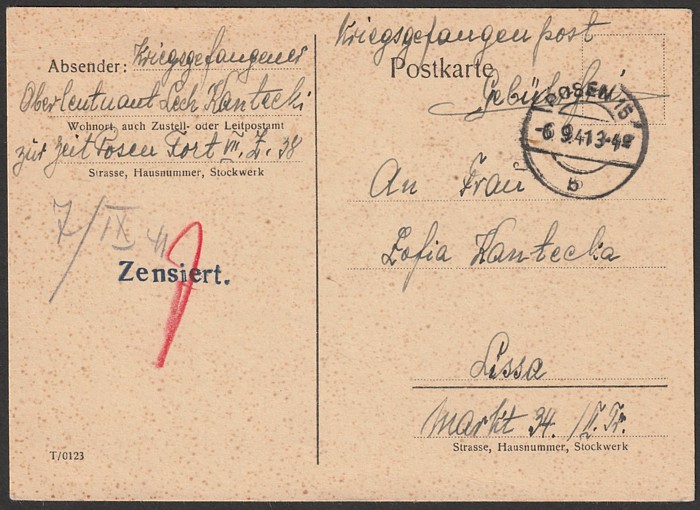 Absender: Kriegsgefangener
Oberleutnant Lech Kantecki
Wohnort, auch Zustell- oder Leitpostamt
zur Zeit Posen Fort VII. Z. 38
Strasse, Hausnummer, Stockwerk
7/IX 41
Zensiert.
T/0123
Kriegsgefangenpost
Postkarte
Gebührfrei
POSEN 15
6.9.41.3-4
b
An Frau
Zofia Kantecka
Lissa
Markt 34. /II. Tr.
Strasse, Hausnummer, Stockwerk